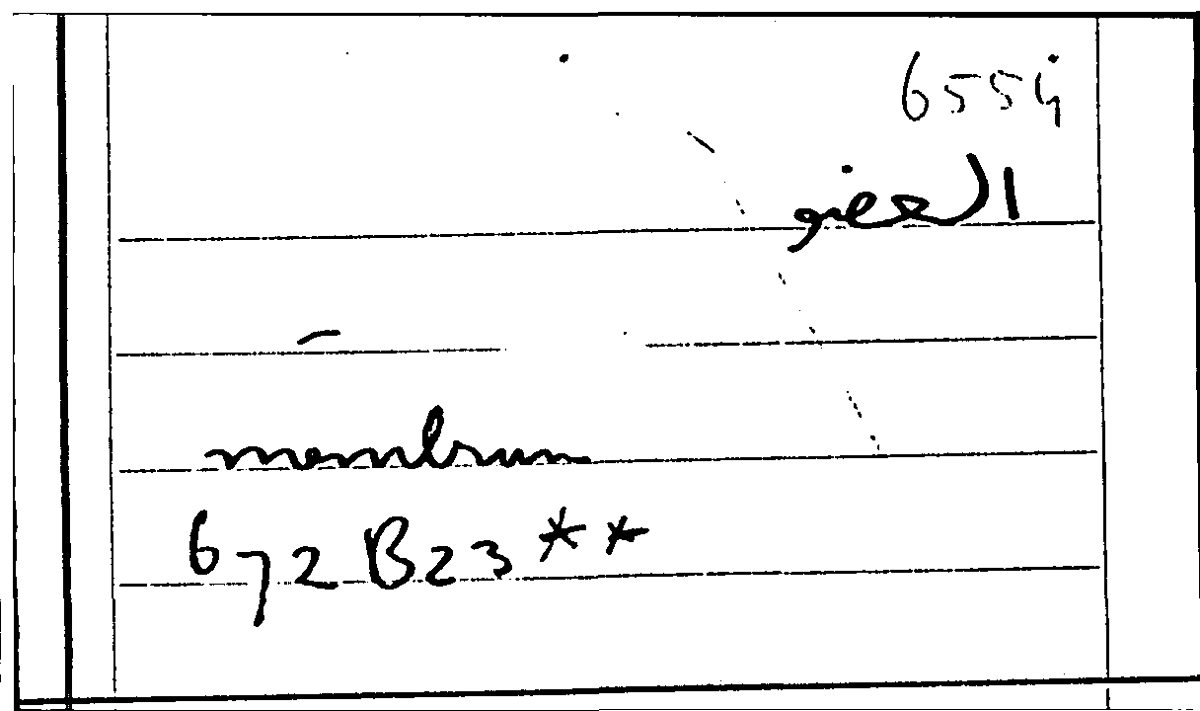 6554
العضو
membrum
672 B23**